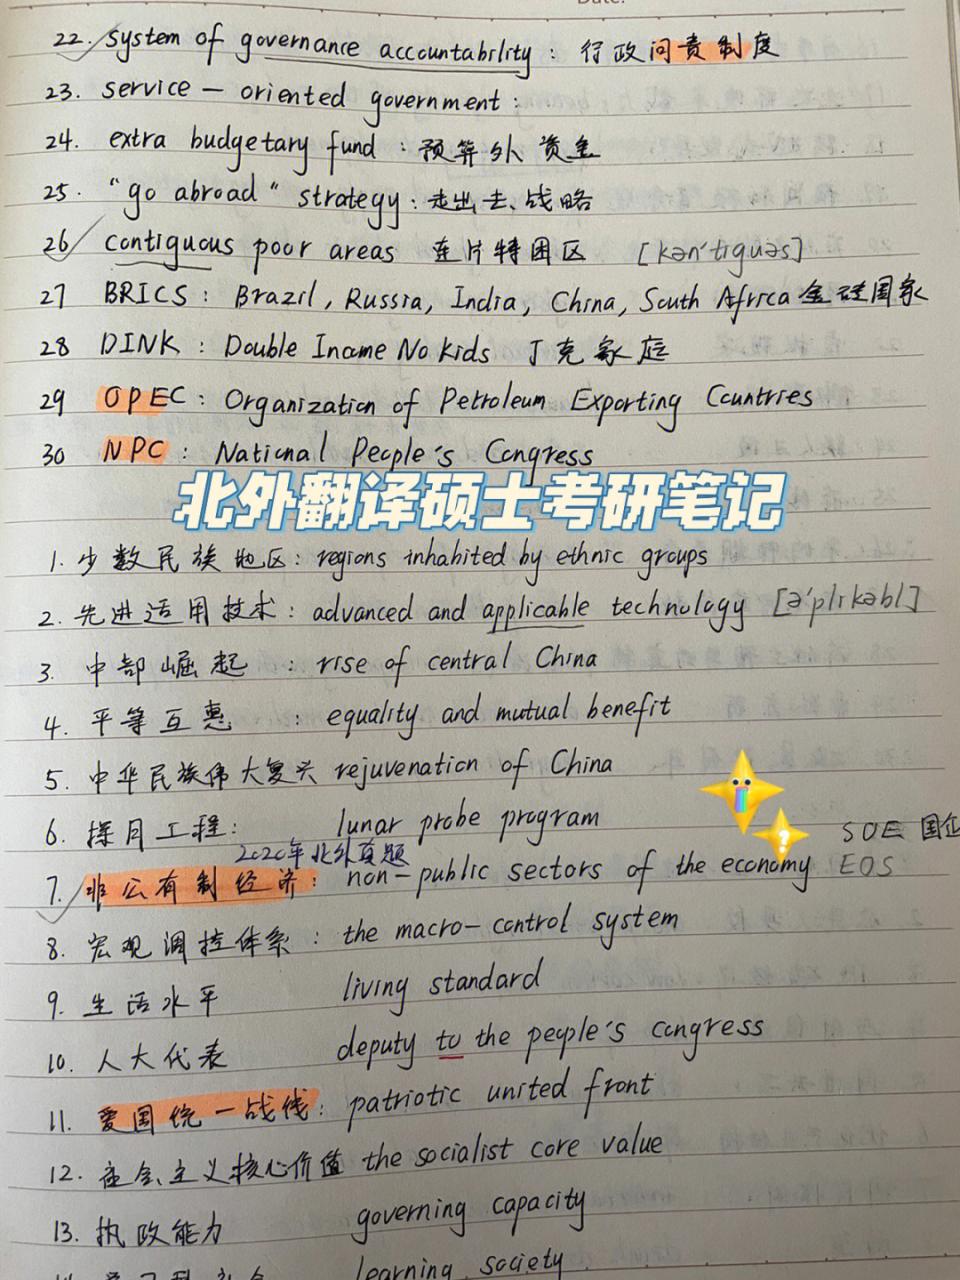 Date:
22. system of governance accountability: 行政问责制度
23. service - oriented government:
24. extra budgetary fund: 预算外资金
25. "go abroad" strategy: 走出去战略
26 contiguous poor areas 连片特困区 [kən'tɪguəs]
27 BRICS: Brazil, Russia, India, China, South Africa 金砖国家
28 DINK: Double Income No Kids 丁克家庭
29 OPEC: Organization of Petroleum Exporting Countries
30 NPC: National People's Congress
北外翻译硕士考研笔记
1. 少数民族地区: regions inhabited by ethnic groups
2. 先进适用技术: advanced and applicable technology [ə'plɪkəbl]
3. 中部崛起: rise of central China
4. 平等互惠: equality and mutual benefit
5. 中华民族伟大复兴 rejuvenation of China
6. 探月工程: lunar probe program
SOE 国企
2020年北外真题
7. 非公有制经济: non-public sectors of the economy EOS
8. 宏观调控体系: the macro-control system
9. 生活水平 living standard
10. 人大代表 deputy to the people's congress
11. 爱国统一战线: patriotic united front
12. 社会主义核心价值 the socialist core value
13. 执政能力 governing capacity
learning society